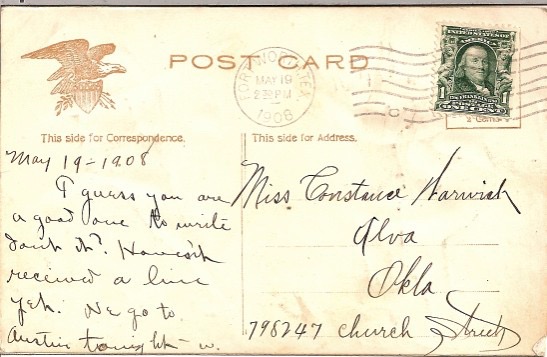 POST CARD
FORT WORTH, TEX.
MAY 19
2 30 PM
1908
UNITED STATES OF AMERICA
1 1
This side for Correspondence.
This side for Address.
May 19-1908
I guess you are
a good one to write
dont it? Haven't
received a line
yet. We go to
Austin tonight - w.
Miss Constance Warwick
Alva
Okla
798247 Church Street